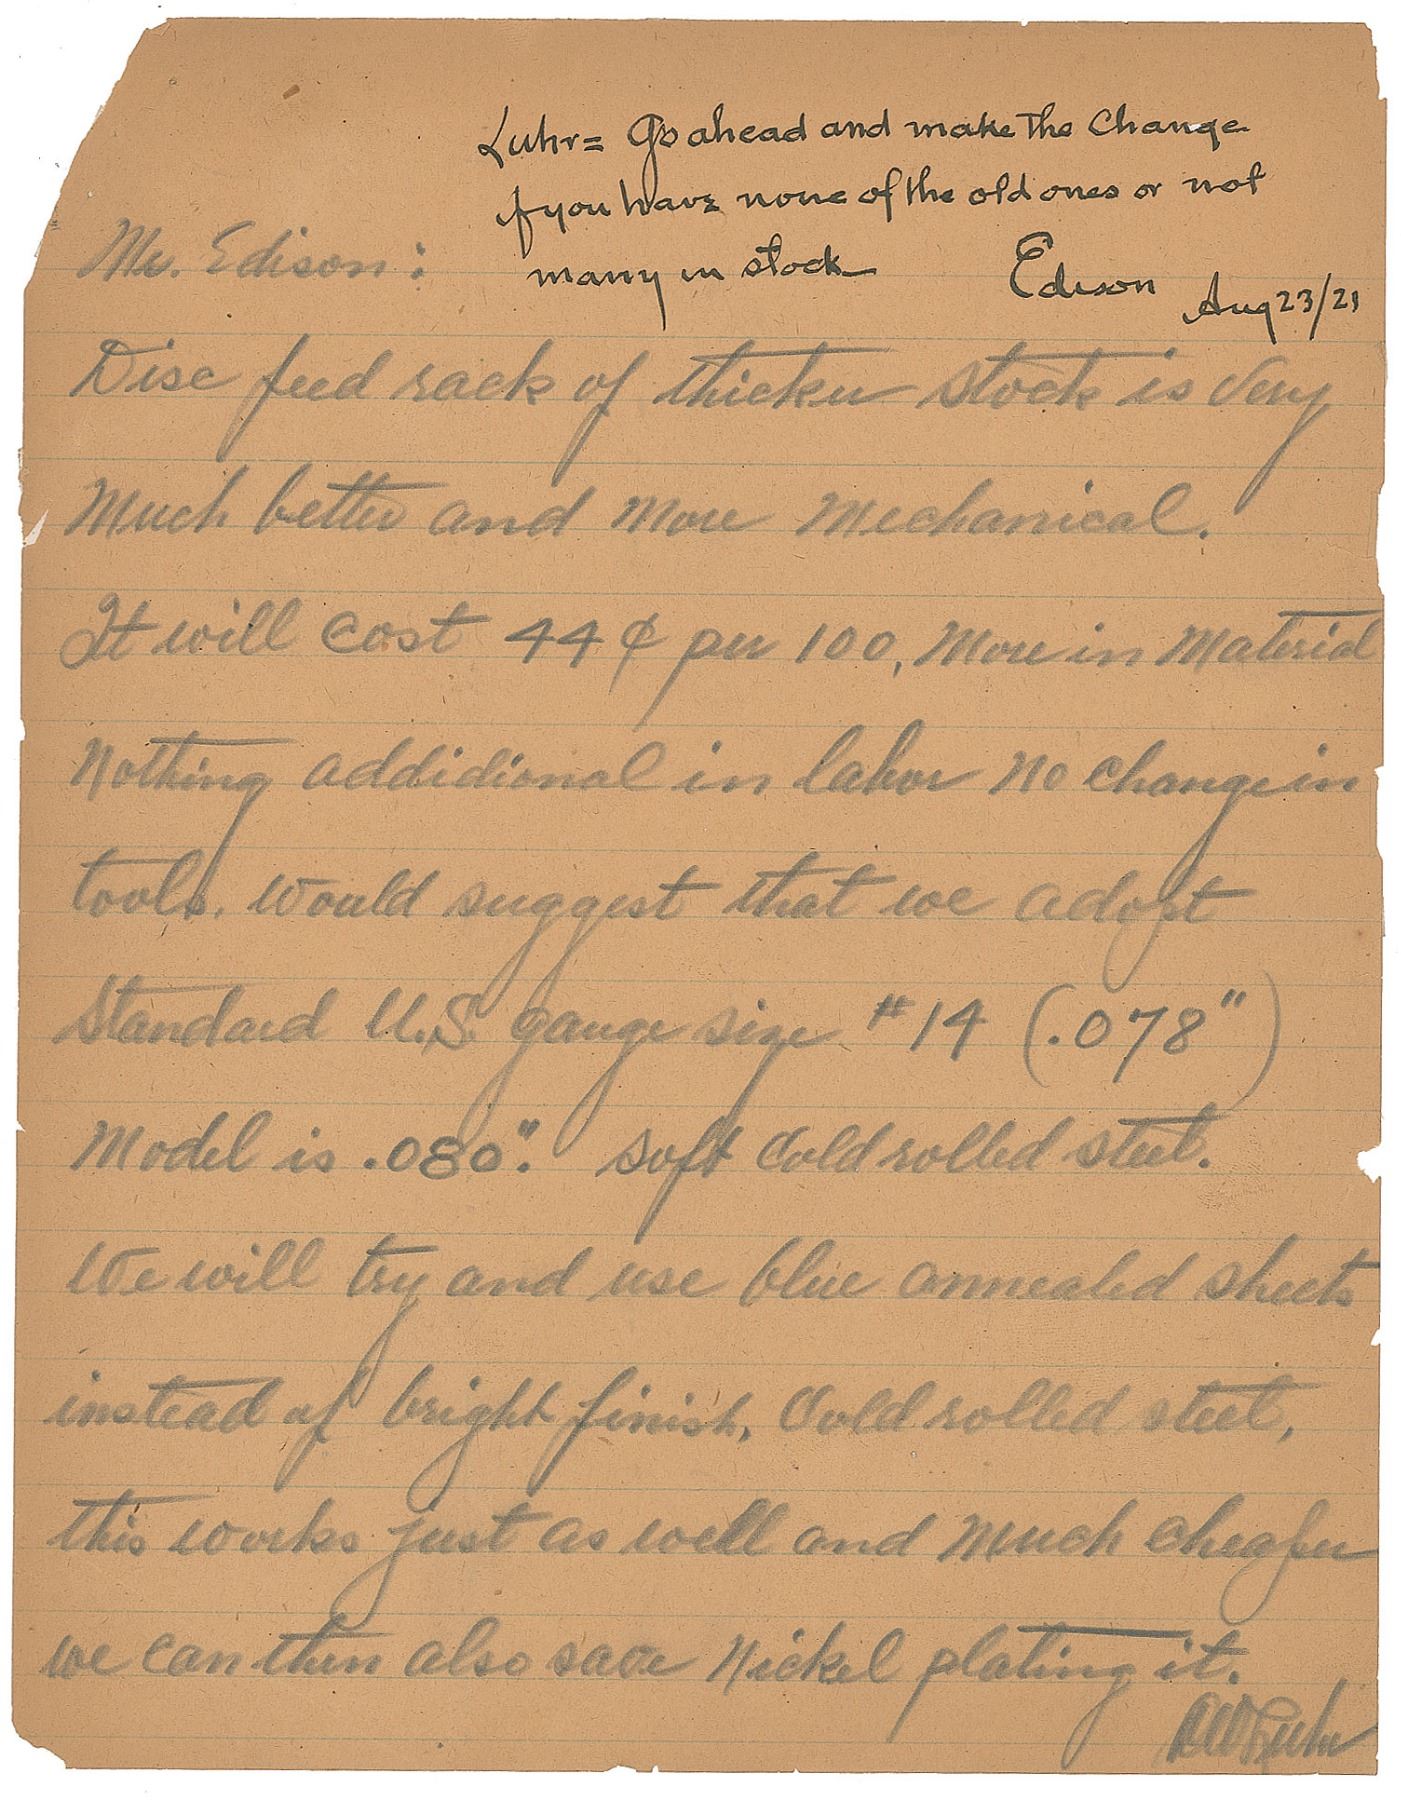 Luhr = Go ahead and make the Change
if you have none of the old ones or not
many in stock
Edison Aug 23/21
Mr. Edison:
Disc feed rack of thicker stock is very
Much better and More Mechanical.
It will cost 44¢ per 100, More in Material
Nothing addidional in labor No change in
tools. Would suggest that we adopt
Standard U.S. gauge size #14 (.078")
Model is .080". soft Cold rolled steel.
We will try and use blue annealed sheets
instead of bright finish, Cold rolled steel,
this works just as well and Much cheaper
we can then also save Nickel plating it.
Luhr